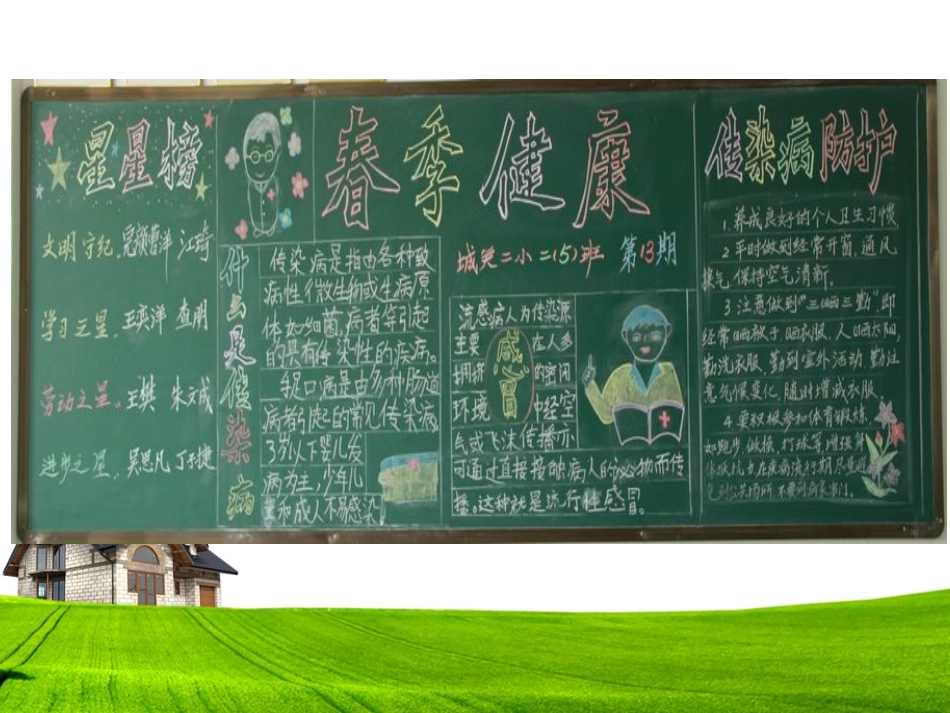 星星榜
文明守纪
学习之星 王奕洋 查玥
劳动之星 王樊 朱文成
进步之星 吴思凡
什么是传染病
传染病是指由各种致
病性微生物或生病原
体如细菌、病者等引起
的具有传染性的疾病。
手足口病是由多种肠道
病者引起的常见传染病
3岁以下婴儿发
病为主,少年儿
童和成人不易感染
春季健康
城关二小二(5)班 第13期
感冒
流感病人为传染源
主要 在人多
拥挤 的密闭
环境 中经空
气或飞沫传播亦
可通过直接接触病人的分必物而传
播。这种就是流行性感冒。
传染病防护
1.养成良好的个人卫生习惯
2 平时做到经常开窗,通风
换气,保持空气清新。
3 注意做到“三晒三勤”,即
经常晒被子,晒衣服,人晒太阳,
勤洗衣服,勤到室外活动,勤注
意气候变化,随时增减衣服
4 要积极参加体育锻炼,
如跑步、做操、打球等,增强身
体抵抗力在疾病流行期尽量避
免到公共场所